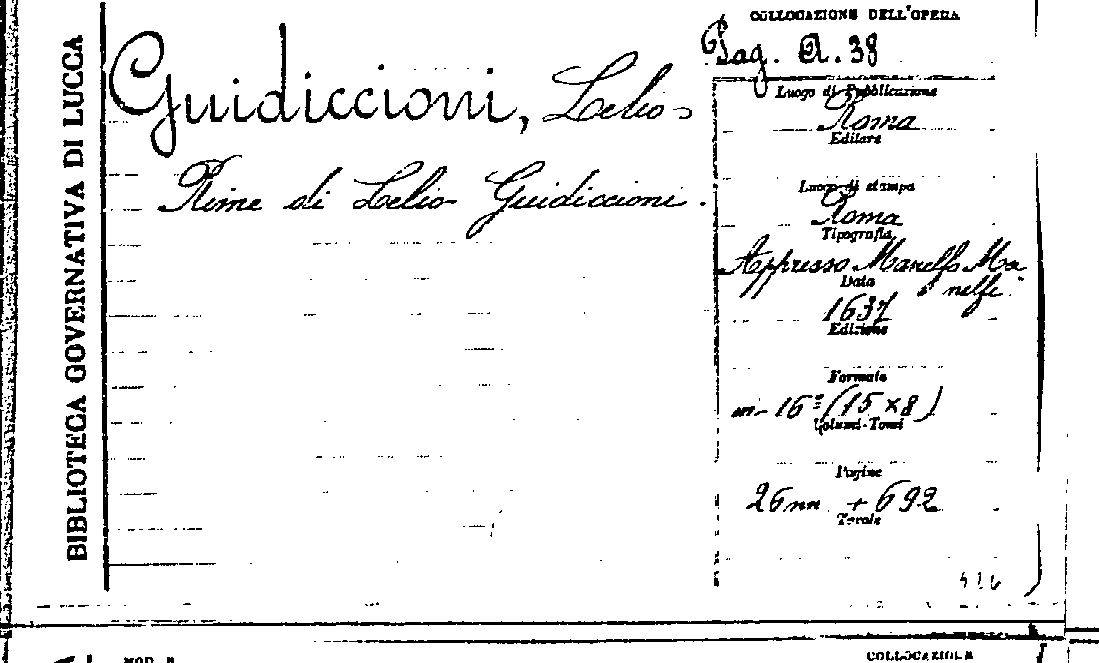 BIBLIOTECA GOVERNATIVA DI LUCCA
Guidiccioni, Lelio
Rime di Lelio Guidiccioni.
COLLOCAZIONE DELL'OPERA
Pag. A. 38
Luogo di Pubblicazione
Roma
Editore
Luogo di stampa
Roma
Tipografia
Appresso Manelfo Ma
nelfi
Data
1637
Edizione
Formato
in-16º (15 x 8)
Volumi-Tomi
Pagine
26 nn + 692
Tavole
MOD.
COLLOCAZIONE